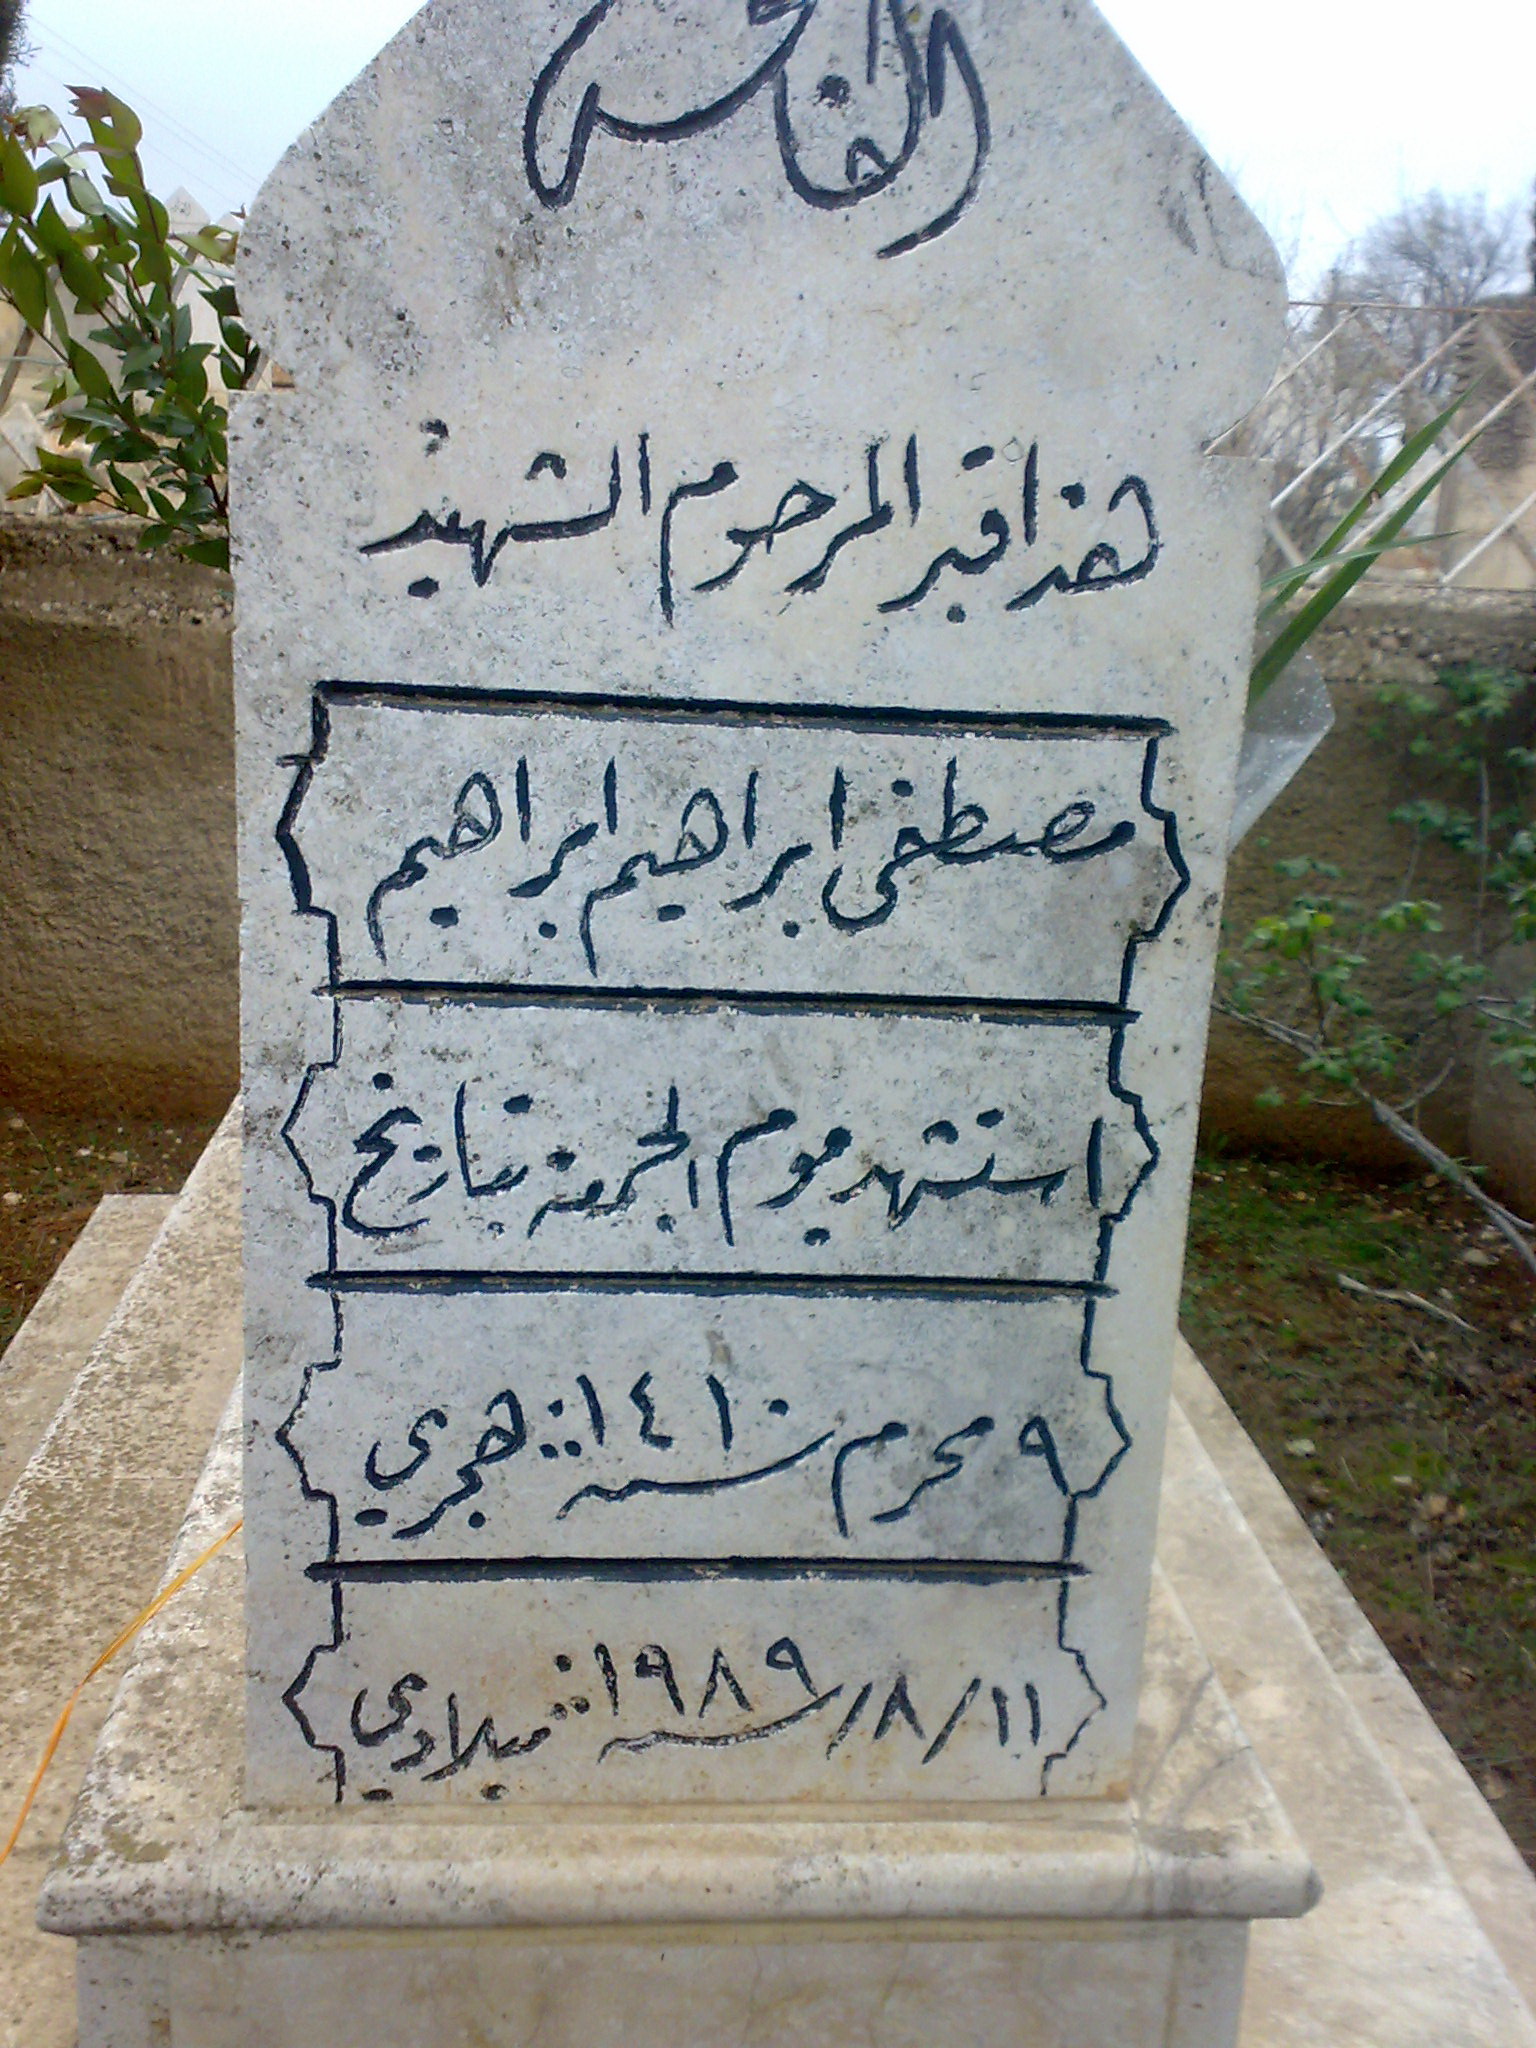 الفاتحة
هذا قبر المرحوم الشهيد
مصطفى ابراهيم ابراهيم
استشهد يوم الجمعة بتاريخ
٩ محرم سنة ١٤١٠ هجري
١١/٨/ سنة ١٩٨٩ ميلادي